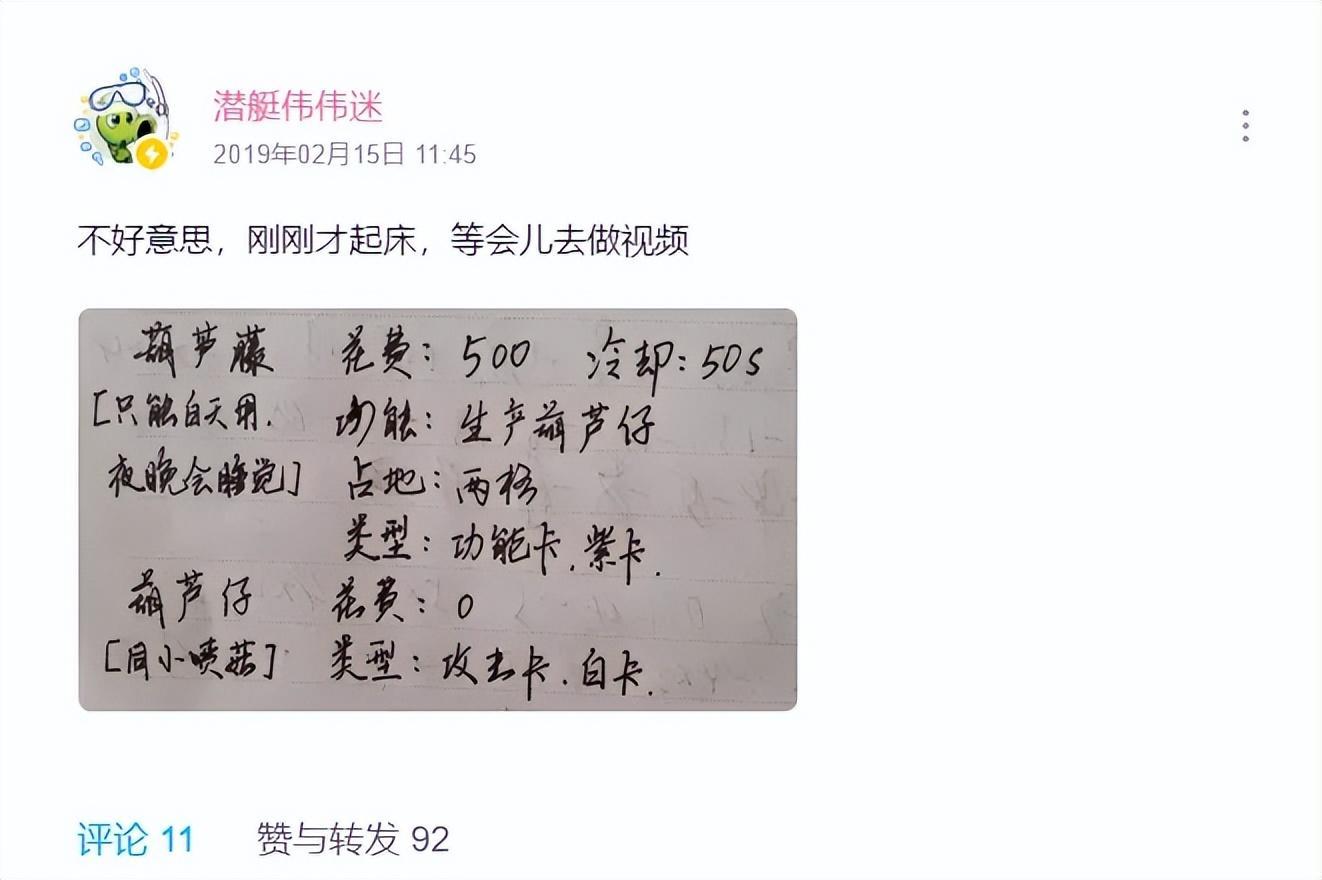 潜艇伟伟迷
2019年02月15日 11:45
不好意思，刚刚才起床，等会儿去做视频
葫芦藤 花费：500 冷却：50s
[只能白天用. 功能：生产葫芦仔
夜晚会睡觉] 占地：两格
类型：功能卡.紫卡.
葫芦仔 花费：0
[同小喷菇] 类型：攻击卡.白卡.
评论 11 赞与转发 92